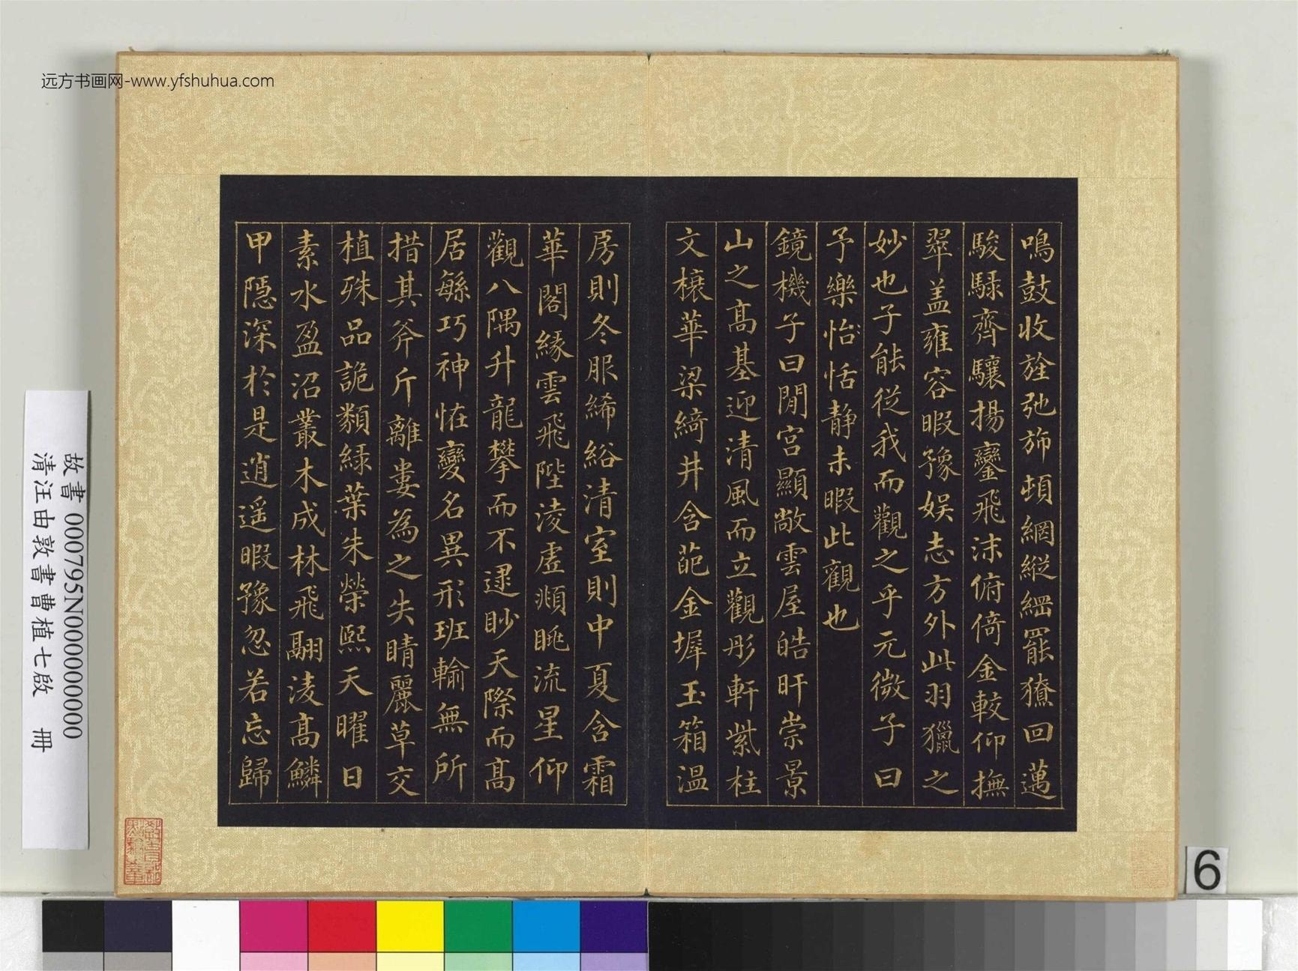 远方书画网-www.yfshuhua.com
鳴鼓收旌弛斾頓網縱綱罷獠回邁
駿騄齊驤揚鑾飛沫俯倚金較仰撫
翠蓋雍容暇豫娱志方外此羽獵之
妙也子能從我而觀之乎元微子曰
予樂怡恬静未暇此觀也
鏡機子曰閒宫顯敞雲屋皓旰崇景
山之高基迎清風而立觀彤軒紫柱
文榱華梁綺井含葩金墀玉箱温
房則冬服絺綌清室則中夏含霜
華閣緣雲飛陛凌虚頫眺流星仰
觀八隅升龍攀而不逮眇天際而高
居緐巧神恠變名異形班輸無所
措其斧斤離婁為之失睛麗草交
植殊品詭類緑葉朱榮熙天曜日
素水盈沼叢木成林飛翮淩高鱗
甲隱深於是逍遥暇豫忽若忘歸
故書 000795N000000000
清汪由敦書曹植七啟 冊
6